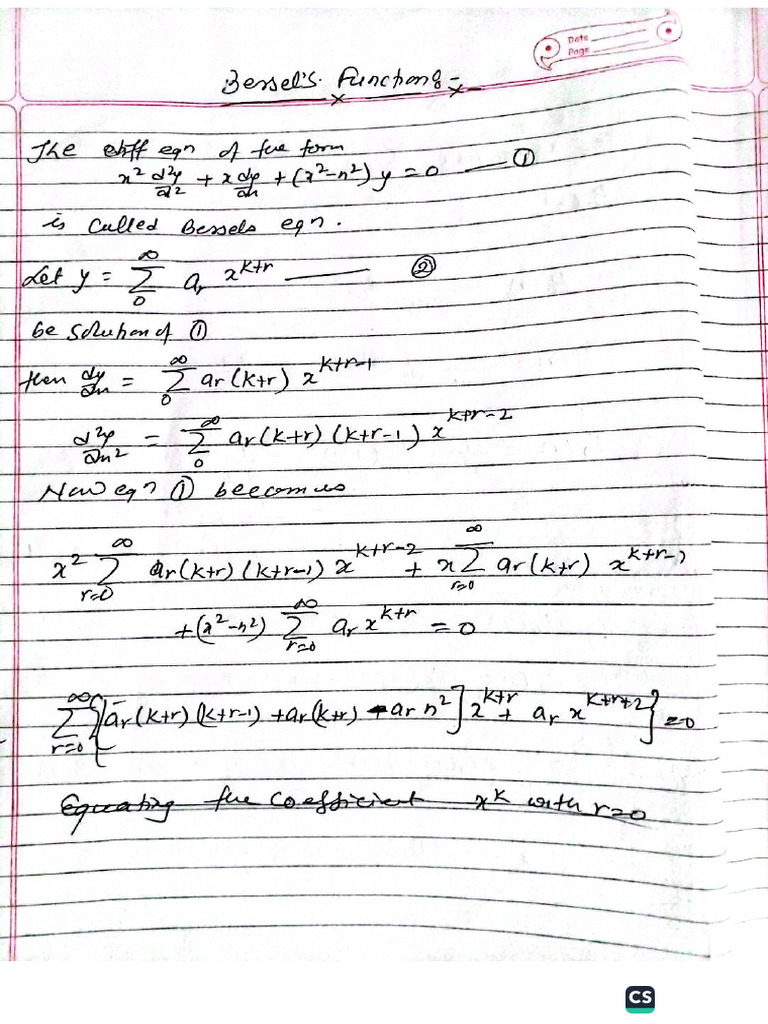 Date
Page
Bessel's Functions
The diff eqn of the form
x² d²y/dx² + x dy/dx + (x²-n²) y = 0 — ①
is Called Bessels eqn.
Let y = ∑₀^∞ aᵣ x^{k+r} — ②
be solution of ①
then dy/dx = ∑₀^∞ ar (k+r) x^{k+r-1}
d²y/dx² = ∑₀^∞ ar (k+r) (k+r-1) x^{k+r-2}
Now eqn ① beecomes
x² ∑_{r=0}^∞ ar (k+r) (k+r-1) x^{k+r-2} + x ∑_{r=0}^∞ ar (k+r) x^{k+r-1}
+ (x²-n²) ∑_{r=0}^∞ ar x^{k+r} = 0
∑_{r=0}^∞ {[ar (k+r) (k+r-1) + ar (k+r) - ar n²] x^{k+r} + ar x^{k+r+2}} = 0
Equating the Coefficient x^k with r=0
CS